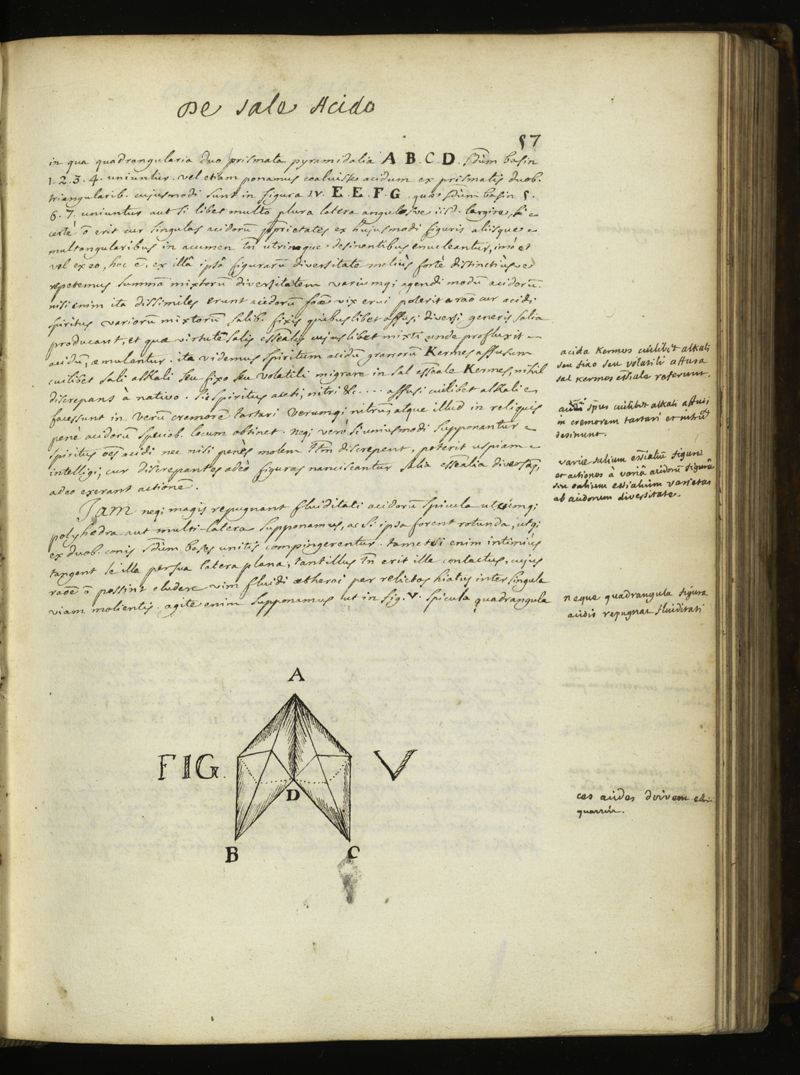 De Sale Acido
57
in qua quadrangularia duo prismata pyramidalia A B. C. D. s̄dum basin
1. 2. 3. 4. uniuntur. vel etiam ponamus coaluisse acidum ex prismatis duob.
triangularib. cujusmodi sunt in figura IV. E. E. F. G. quae s̄dum basin 5.
6. 7. uniuntur aut si libet multo plura latera angulosve iisd. largire,
certe ō erit cur singulas acidorū proprietates ex hujusmodi figuris aliisque
multangularibus in acumen tn̄ utrinque desinentibus enucleantur, imò et
vel ex eo, hoc ē, ex illâ ipsâ figurarū diversitate meliùs fortè distinctiùsve
repetemus summā mixtorū diversitatem variumqi agendi modū acidorū.
nisi enim ita dissimiles erunt acidorū vix erui poterit cur acidi
spiritus variorū mixtorū salib. fixis quibuslibet affusi diversi generis salia
producant, et quae virtute salis essēalis cujuslibet mixti unde profluxit
acidū, aemulentur. ita videmus spiritum acidū granorū Kermes affusum
cuilibet sali alkali seu fixo seu volatili migrare in sal essēale Kermes, nihil
discrepans a nativo. sic spiritus aceti, nitri &c.... affusi cuilibet alkali
facessunt in verū cremorē tartari verumqi nitrū, atque illud in reliquis
penè acidorū specieb. locum obtinet. neqi verò si uniusmodi supponantur
spiritus oēs acidi nec nisi penès molem discrepent, poterit uspiam
intelligi, cur discrepantes adeò figuras nanciscantur salia essēalia diversāqi
adeo exerant actionē.
Jam neqi magis repugnant fluiditati acidorū spicula utcumqi
polyhedra aut multi-latera supponamus, ac si ipsa forent rotunda, utqi
ex duob. conis s̄dum bases unitis compingerentur. tametsi enim intimiùs
tangent se illa per sua latera plana, tantillus tn̄ erit ille contactus, cujus
raōe ō possint eludere vim fluidi aetherei per relictos hiatus inter singula
viam molientis. agite enim supponamus ut in fig. V. spicula quadrangula
acida Kermes cuilibet alkali
seu fixo seu volatili affusa
sal Kermes essēiale referunt.
spūs cuilibet alkali affusi
in cremorem tartari et nitrū
desinunt.
variae salium essēialium figurae
et actiones à variâ acidorū figurâ
seu salium essēialium varietas
ab acidorum diversitate.
neque quadrangula figura
acidis repugnat fluiditati
A
FIG. V
D
B C
ces acides doivent